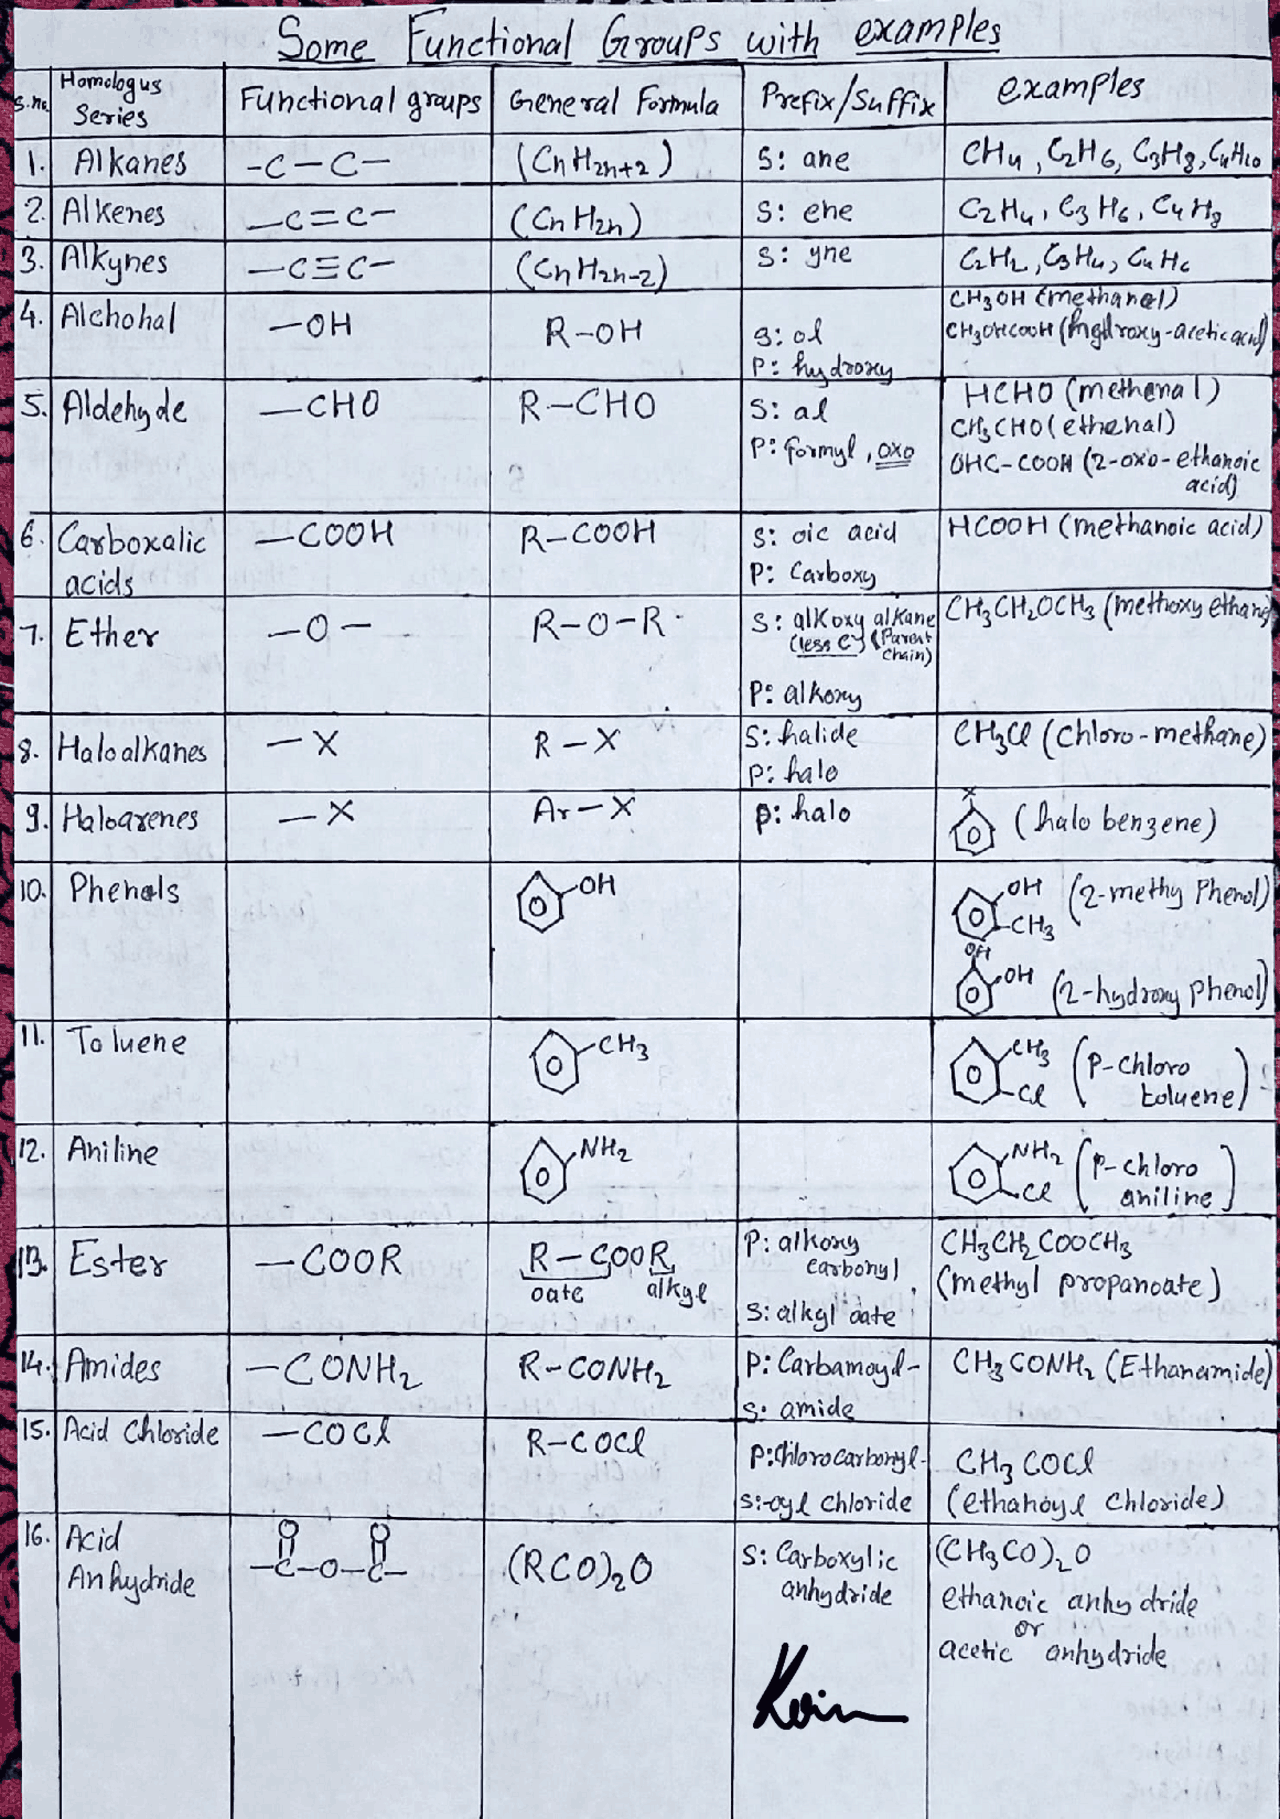 Some Functional Groups with examples
S.no. Homologus Series Functional groups General Formula Prefix/Suffix examples
1. Alkanes -C-C- (CnH2n+2) S: ane CH4, C2H6, C3H8, C4H10
2. Alkenes -C=C- (CnH2n) S: ene C2H4, C3H6, C4H8
3. Alkynes -C≡C- (CnH2n-2) S: yne C2H2, C3H4, C4H6
4. Alchohal -OH R-OH S: ol
P: hydroxy
CH3OH (methanol)
CH3OHCOOH (hydroxy-acetic acid)
5. Aldehyde -CHO R-CHO S: al
P: formyl, oxo
HCHO (methanal)
CH3CHO (ethanal)
OHC-COOH (2-oxo-ethanoic
acid)
6. Carboxalic
acids
-COOH R-COOH S: oic acid
P: Carboxy
HCOOH (methanoic acid)
7. Ether -O- R-O-R S: alkoxy alkane
(less C) (Parent
chain)
P: alkoxy
CH3CH2OCH3 (methoxy ethane)
8. Haloalkanes -X R-X S: halide
P: halo
CH3Cl (Chloro-methane)
9. Haloarenes -X Ar-X P: halo
X
(halo benzene)
10. Phenols OH
OH (2-methy Phenol)
CH3
OH
OH (2-hydroxy phenol)
11. Toluene CH3
CH3 (P-chloro
Cl toluene)
12. Aniline NH2
NH2 (P-chloro
Cl aniline)
13. Ester -COOR R-COOR
oate alkyl
P: alkoxy
carbonyl
S: alkyl oate
CH3CH2COOCH3
(methyl propanoate)
14. Amides -CONH2 R-CONH2 P: Carbamoyl-
S: amide
CH3CONH2 (Ethanamide)
15. Acid Chloride -COCl R-COCl P: Chlorocarbonyl-
S:-oyl chloride
CH3COCl
(ethanoyl chloride)
16. Acid
Anhydride
O O
-C-O-C-
(RCO)2O
S: Carboxylic
anhydride
(CH3CO)2O
ethanoic anhydride
or
acetic anhydride